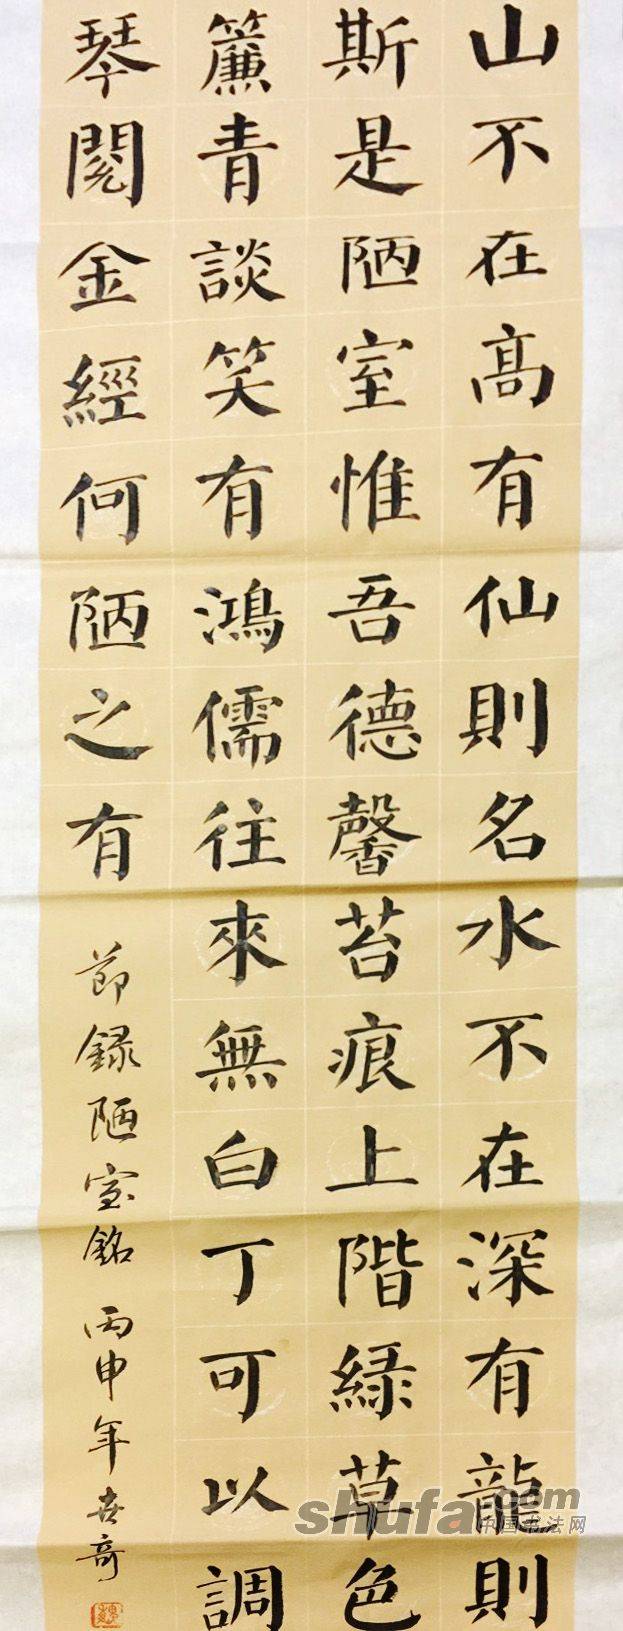 山不在高有仙則名水不在深有龍則
斯是陋室惟吾德馨苔痕上階緑草色
簾青談笑有鴻儒往來無白丁可以調
琴閱金經何陋之有
節録陋室銘 丙申年世奇
shufa.com
中国书法网